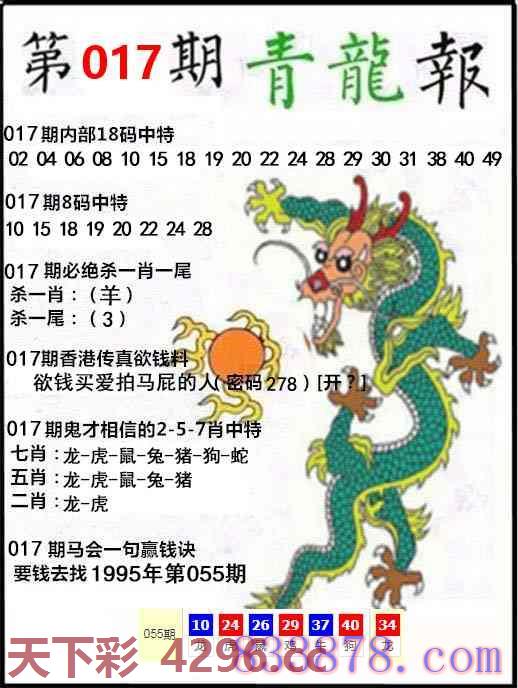 第017期 青龍報
017期内部18码中特
02 04 06 08 10 15 18 19 20 22 24 28 29 30 31 38 40 49
017期8码中特
10 15 18 19 20 22 24 28
017期必绝杀一肖一尾
杀一肖：（羊）
杀一尾：（3）
017期香港传真欲钱料
欲钱买爱拍马屁的人(密码278)[开?]
017期鬼才相信的2-5-7肖中特
七肖：龙-虎-鼠-兔-猪-狗-蛇
五肖：龙-虎-鼠-兔-猪
二肖：龙-虎
017期马会一句赢钱诀
要钱去找1995年第055期
055期 10 24 26 29 37 40 34
龙 虎 鼠 鸡 牛 狗 龙
天下彩 4296.cc
838878.com